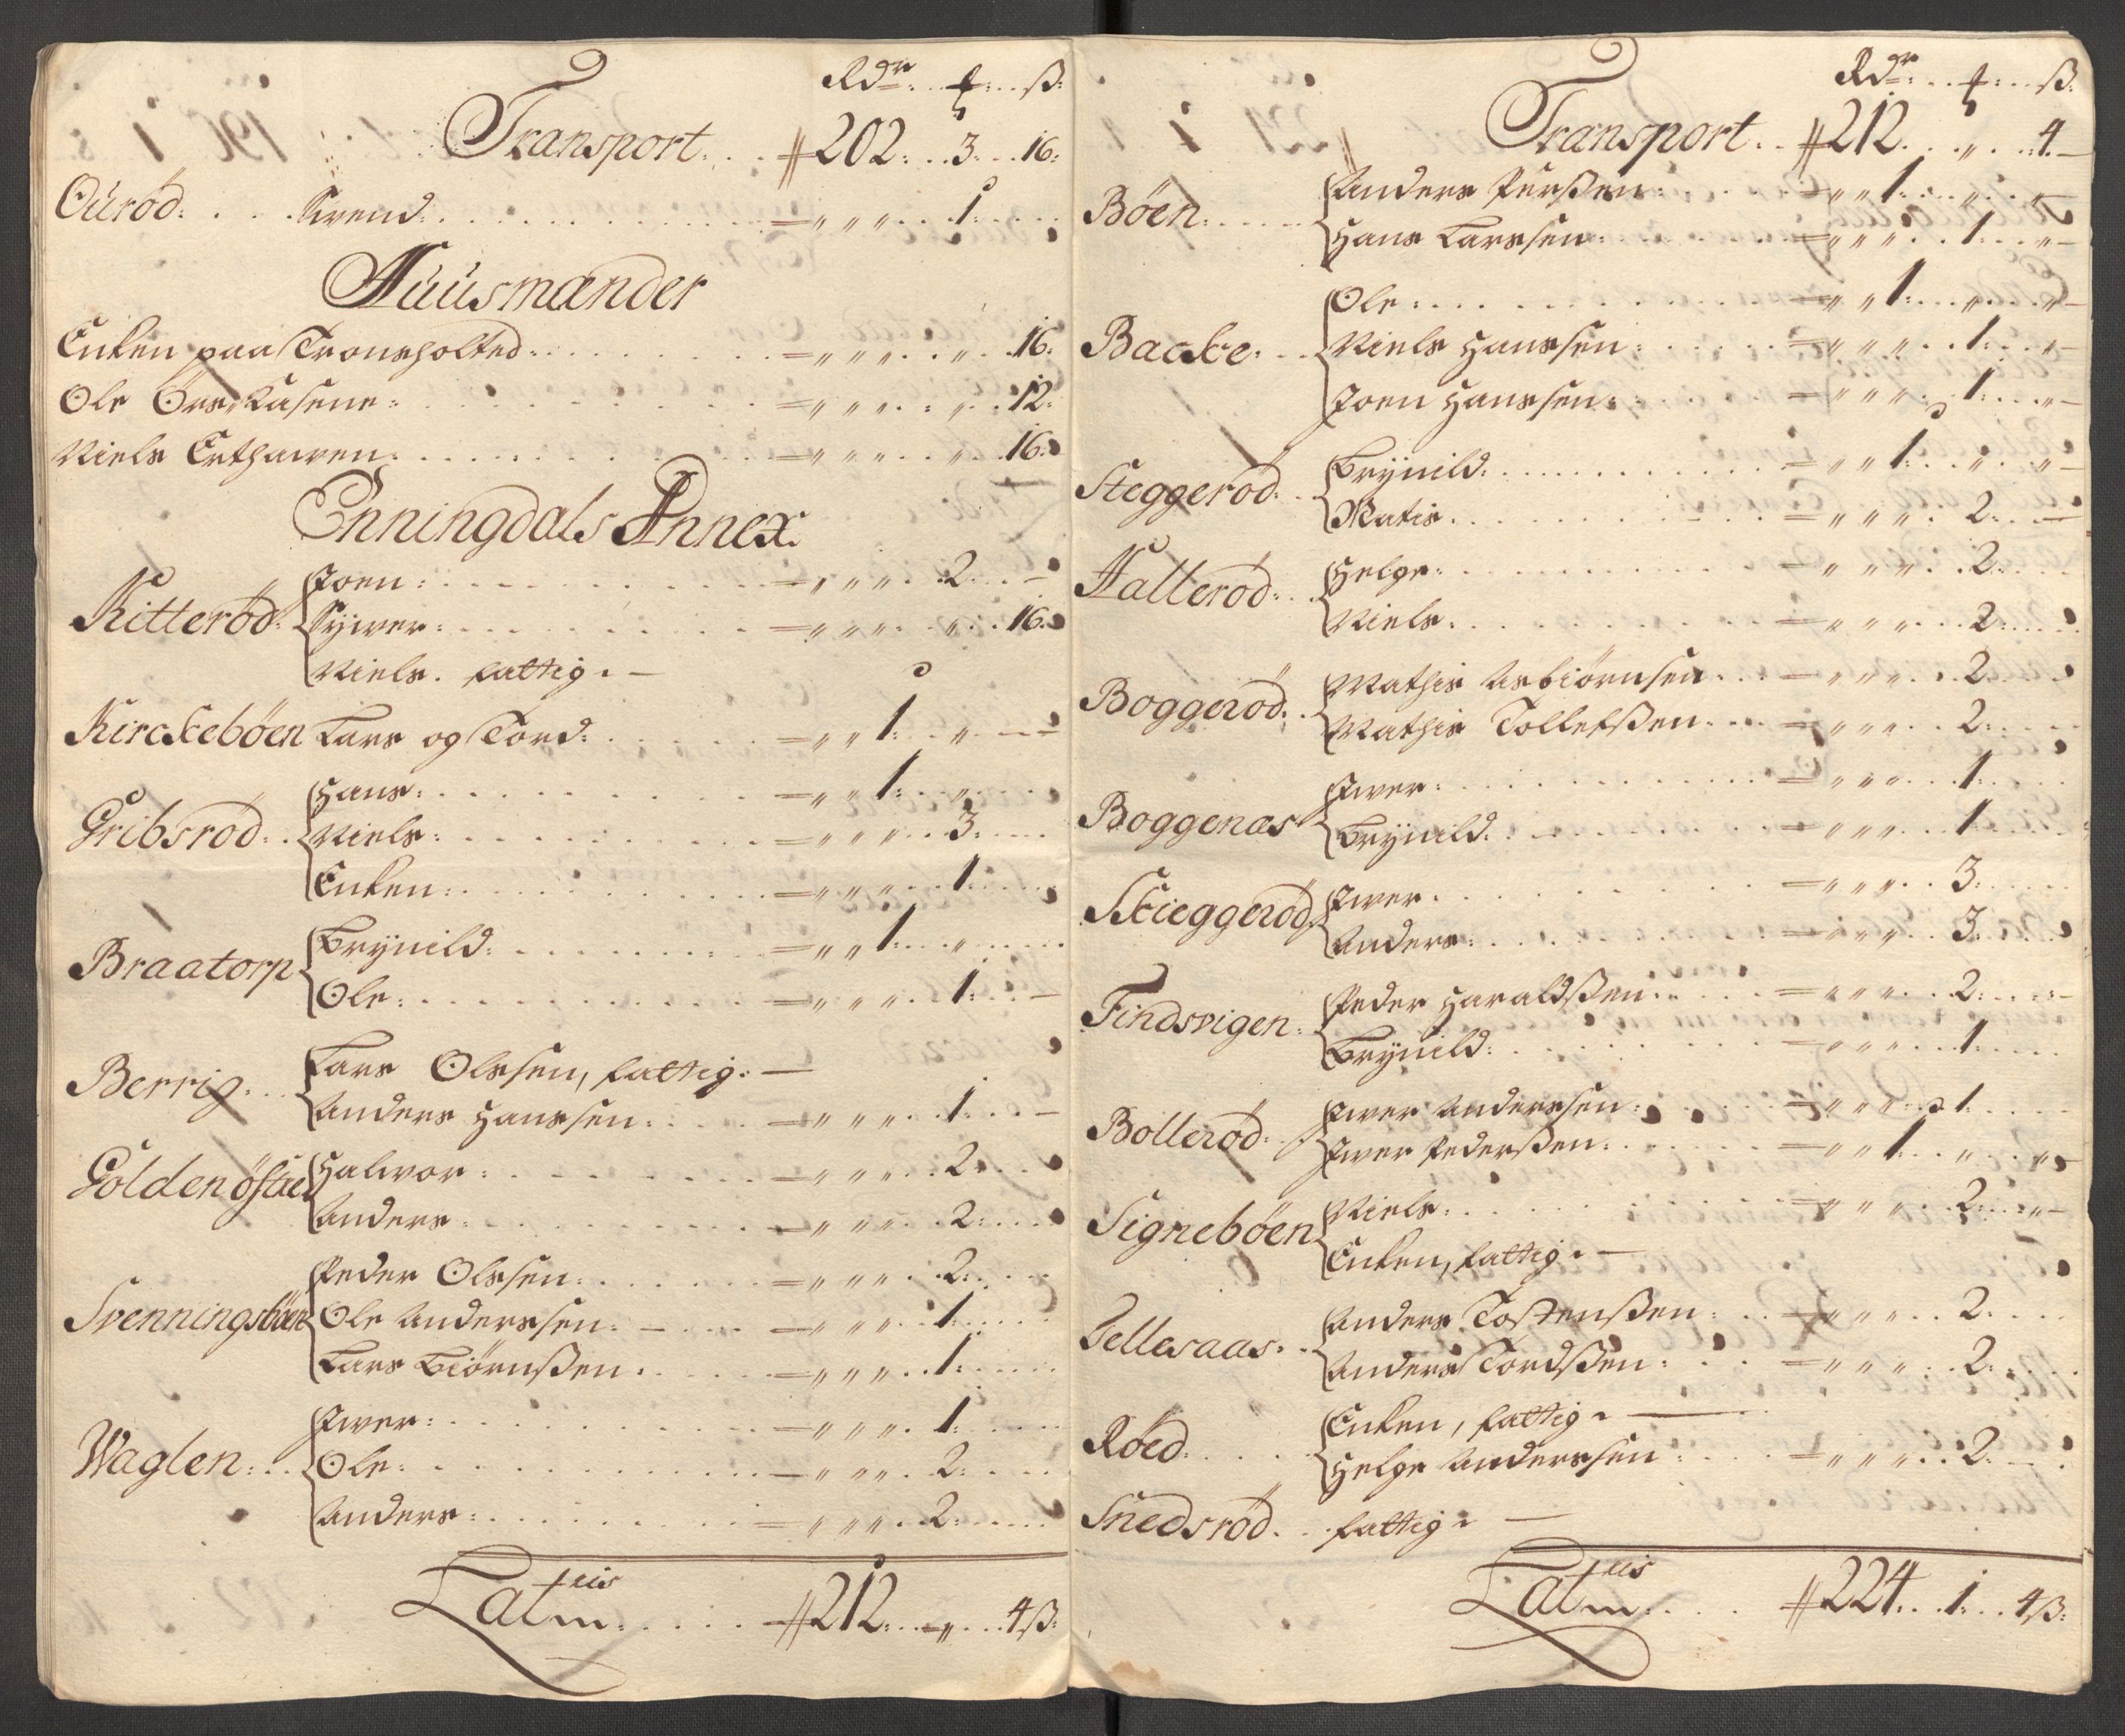 Rdr. ẜ. ß.
Transport. # 202. 3. 16.
Oúrød. Svend. " " " 1.
Húúsmænder
Enken paa Tronsholted. " " " " 16.
Ole Øre Kasene. " " " " 12.
Niels " " " " 16.
Enningdals Annex.
Kitterød. Joen. " " " 2. –
Syver. " " " " 16.
Niels. fattig. –
Kirckebøen Lars og Tord. " " 1. " –
Gribsrød. Hans. " " 1. "
Niels. " " " 3.
Enken. " " " 1.
Braatorp Brynild. " " 1. "
Ole. " " " 1. –
Berrig. Lars Olssen, fattig. –
Anders Hanssen. " " " 1. –
Golden østre Halvor. " " " 2.
Anders. " " " 2.
Svenningsbøen Peder Olssen. " " " 2.
Ole Anderssen. " " " 1.
Lars Biørnßen. " " " 1.
Waglen. Iver. " " " 1.
Ole. " " " 2.
Anders. " " " 2.
Latus # 212. " 4 ß.
Rdr. ẜ. ß.
Transport. # 212. " 4. –
Bøen. Anders Perßen. " " 1. " " –
Hans Larssen. " " " 1. " –
Backe. Ole. " " 1. " " –
Niels Hanssen. " " " 1. " –
Joen Hanssen. " " " 1. " –
Steggerød. Brynild. " " 1. " " –
Matis. " " " 2. –
Hallerød. Helge. " " " 2.
Niels. " " " 2.
Boggerød. Mathis Asbiørnsen. " " " 2.
Mathis Tollefßen. " " " 2.
Boggenæs Iver. " " " 1.
Brynild. " " " 1.
Skieggerød. Iver. " " " 3.
Anders. " " " 3.
Findsvigen. Peder Haraldßen. " " " 2. –
Brynild. " " " 1.
Bollerød. Iver Anderssen. " " " 1.
Iver Pederßen. " " 1. " " –
Signebøen Niels. " " " 2. " –
Enken, fattig. –
Tellesaas. Anders Tostenßen. " " " 2.
Anders Tordßen. " " " 2.
Røed. Enken, fattig. –
Helge Anderssen. " " " 2. –
Snedsrød. fattig. –
Latus # 224. 1. 4 ß.